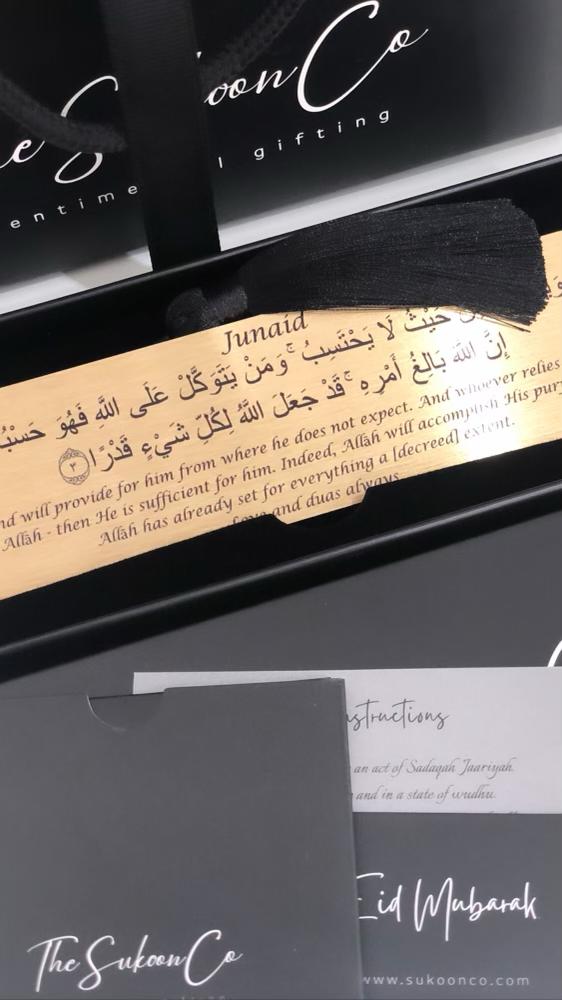 The Sukoon Co
sentimental gifting
Junaid
حَيْثُ لَا يَحْتَسِبُ ۚ وَمَنْ يَتَوَكَّلْ عَلَى اللَّهِ فَهُوَ حَسْبُ
إِنَّ اللَّهَ بَالِغُ أَمْرِهِ ۚ قَدْ جَعَلَ اللَّهُ لِكُلِّ شَيْءٍ قَدْرًا ٣
nd will provide for him from where he does not expect. And whoever relies
Allāh - then He is sufficient for him. Indeed, Allāh will accomplish His pur
Allāh has already set for everything a [decreed] extent.
love and duas always
structions
an act of Sadaqah Jaariyah.
and in a state of wudhu.
Eid Mubarak
www.sukoonco.com
The Sukoon Co